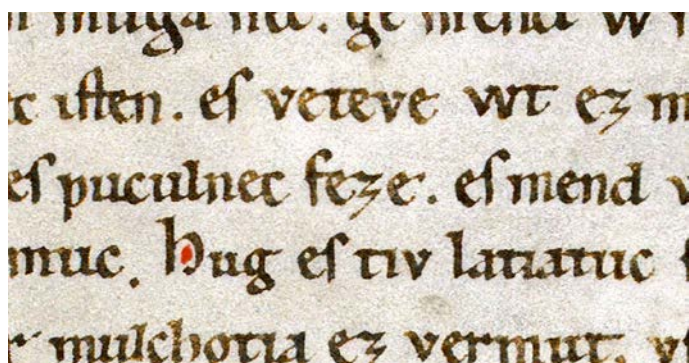 muga nec. ge mend w
iſten. eſ veteve wt ez m
eſ puculnec feze. eſ mend
muc. Hug eſ tiv latiatuc
mulchotia ez vermut.